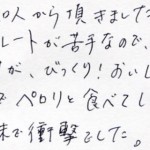 人から頂きました
レートが苦手なので、
が、びっくり！おいし
ペロリと食べてし
味で衝撃でした。